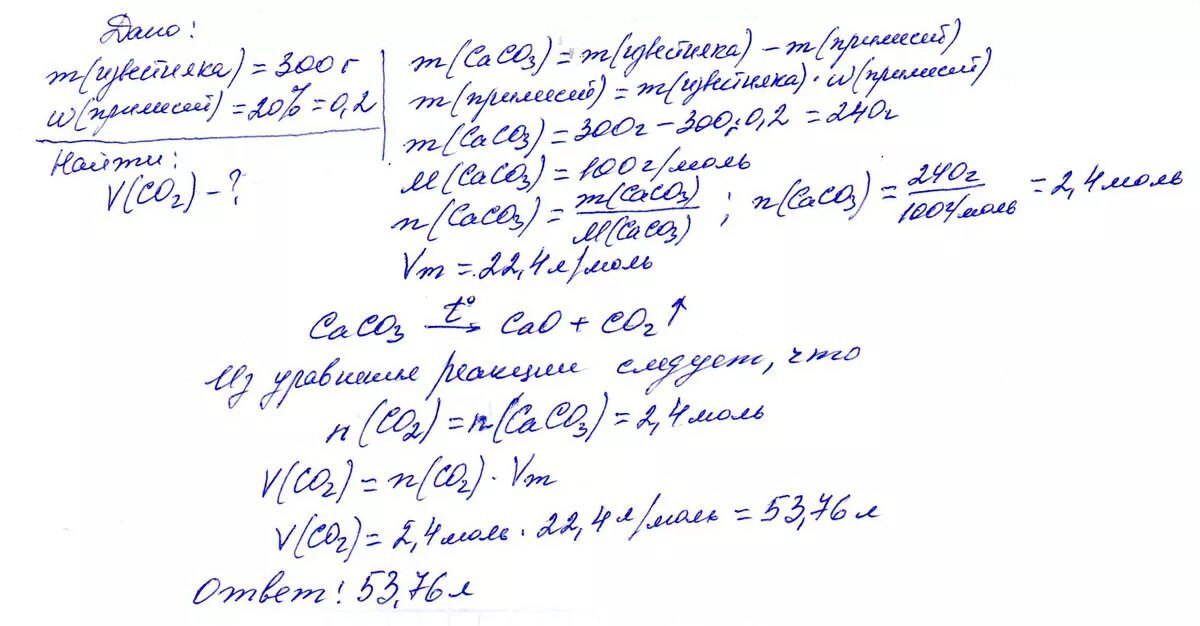 Дано:
m(известняка) = 300 г
w(примесей) = 20% = 0,2
Найти:
V(CO₂) - ?
m(CaCO₃) = m(известняка) - m(примесей)
m(примесей) = m(известняка) · w(примесей)
m(CaCO₃) = 300г - 300г·0,2 = 240г
M(CaCO₃) = 100г/моль
n(CaCO₃) = m(CaCO₃)/M(CaCO₃) ; n(CaCO₃) = 240г/100г/моль = 2,4 моль
Vm = 22,4 л/моль
CaCO₃ t°→ CaO + CO₂↑
Из уравнения реакции следует, что
n(CO₂) = n(CaCO₃) = 2,4 моль
V(CO₂) = n(CO₂) · Vm
V(CO₂) = 2,4 моль · 22,4 л/моль = 53,76 л
Ответ: 53,76 л